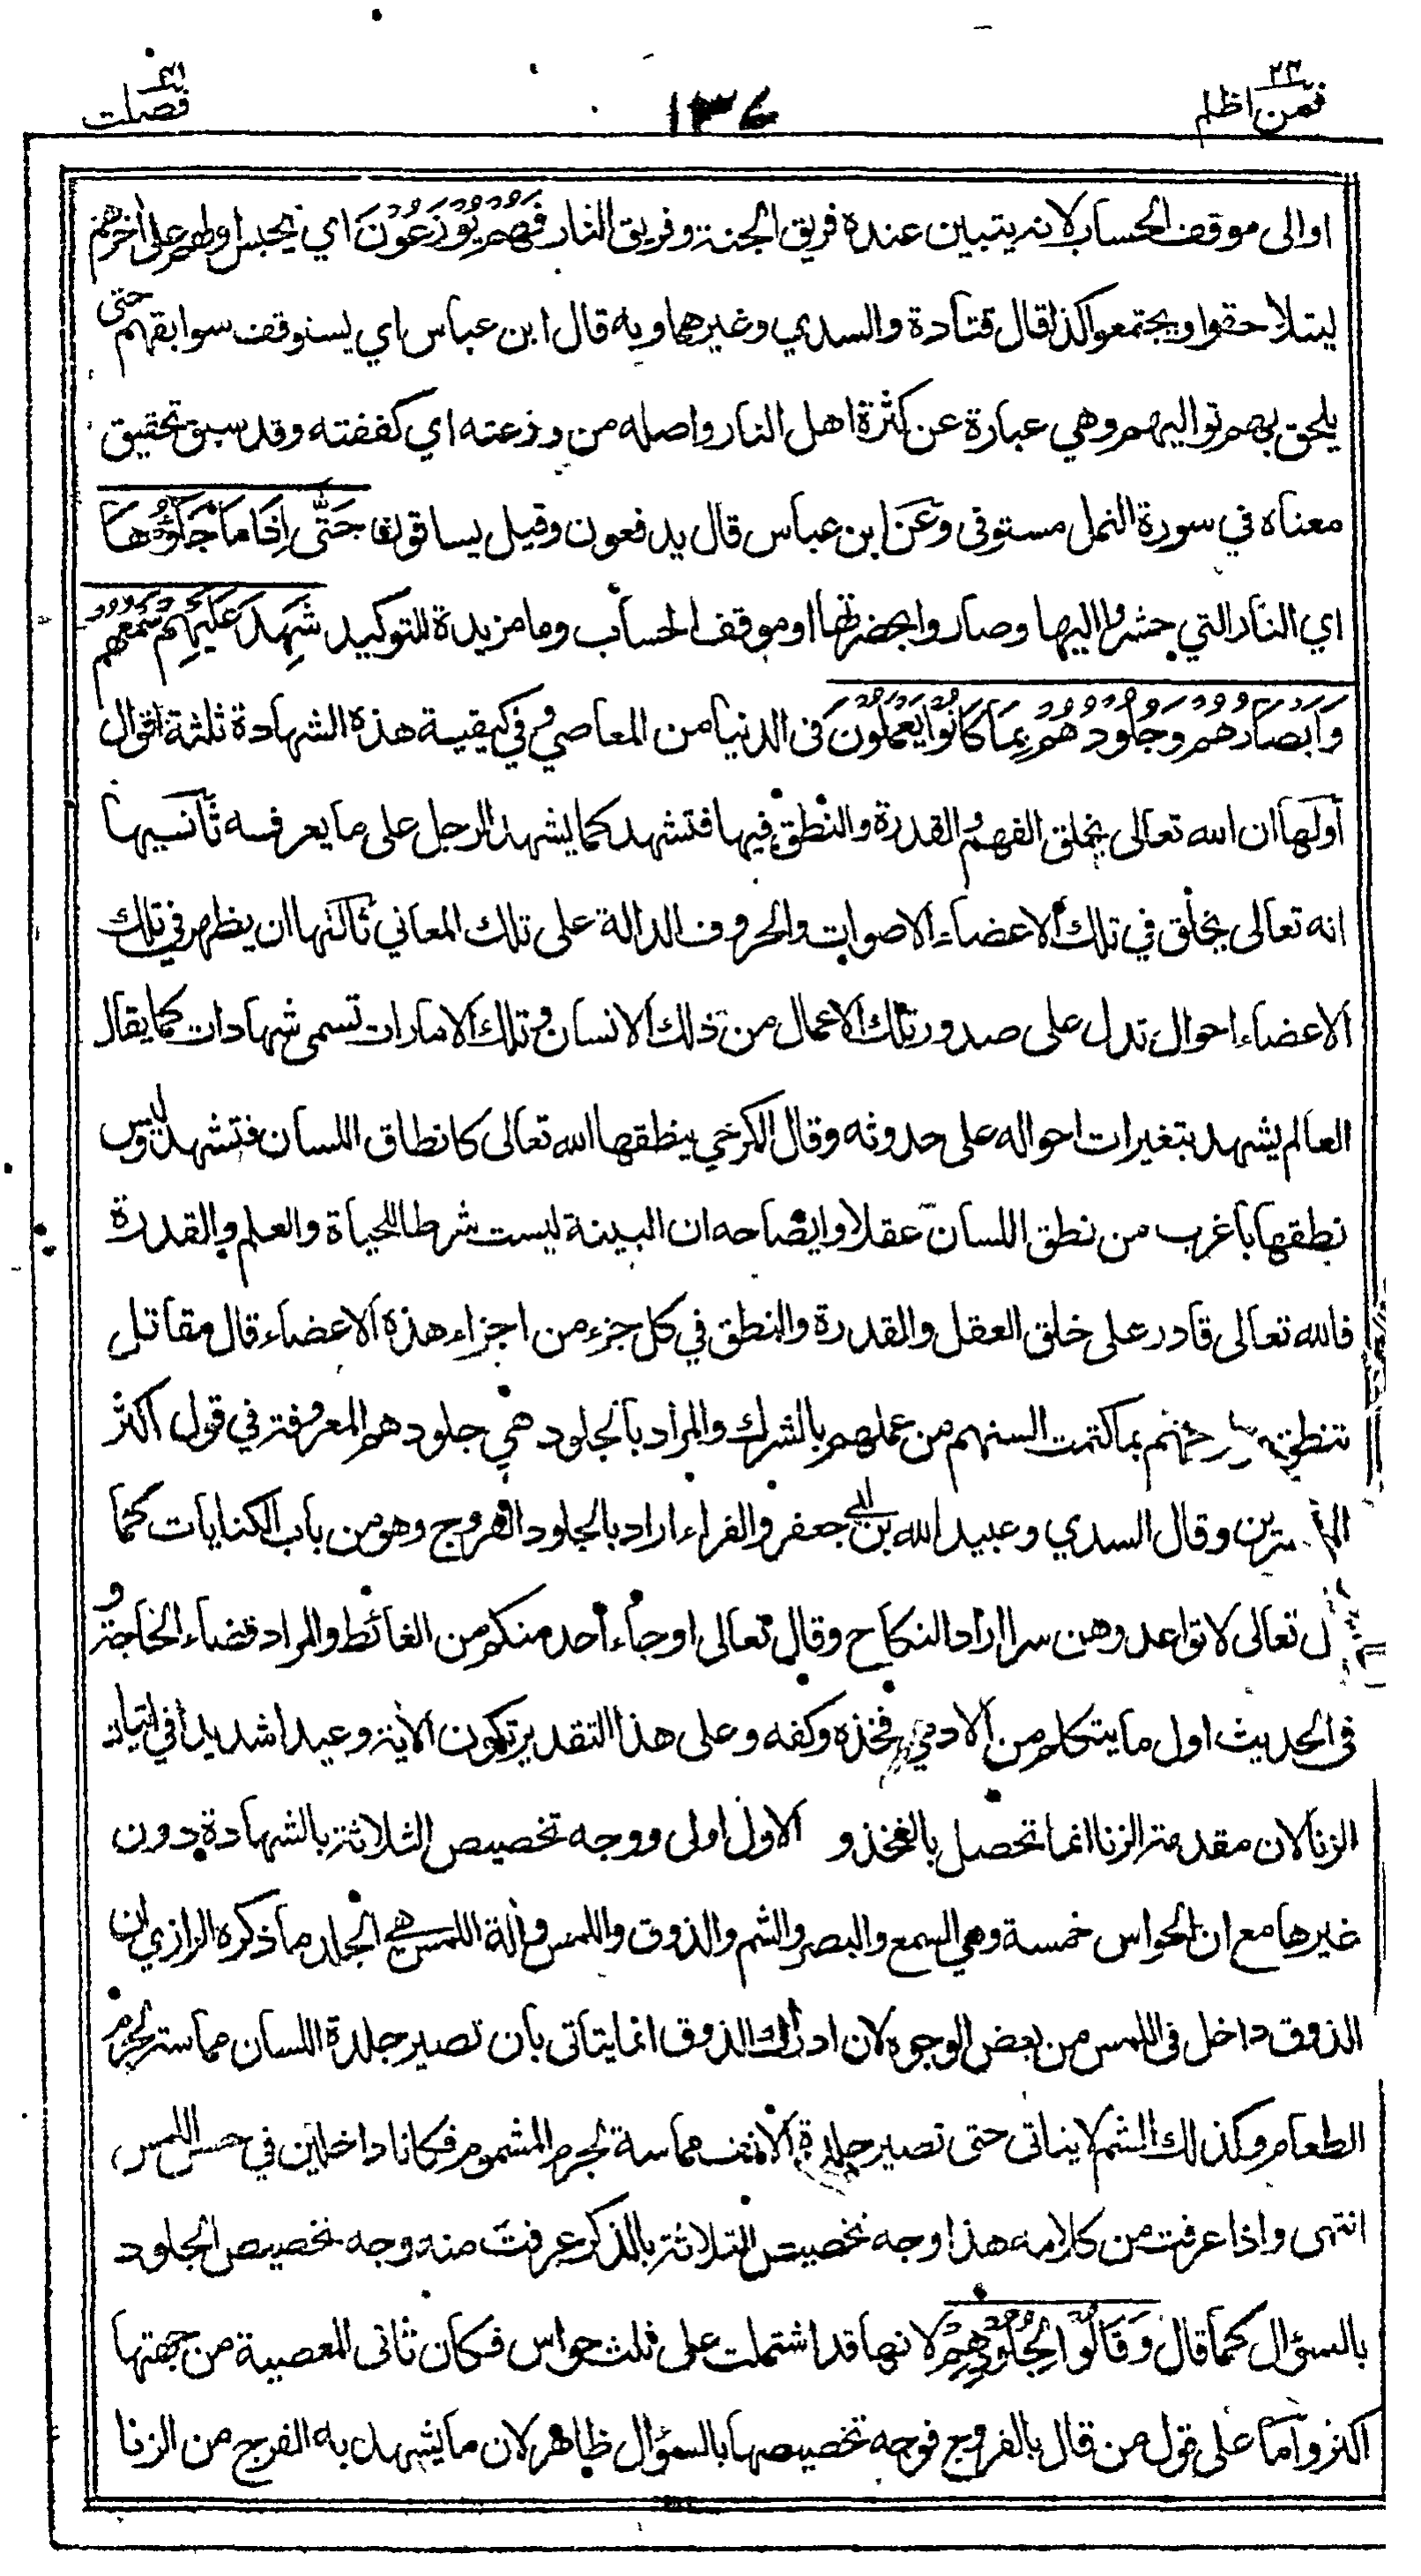 فمن اظلم ٢٤
١٣٧
فصلت ٤١
او الى موقف الحساب لانه يتبين عنده فريق الجنة و فريق النار فَهُمْ يُوزَعُونَ اي يحبس اولهم على اخرهم
ليتلاحقوا ويجتمعوا كذا قال قتادة والسدي وغيرهما وبه قال ابن عباس اي يستوقف سوابقهم حتى
يلحق بهم تواليهم وهي عبارة عن كثرة اهل النار واصله من وزعته اي كففته وقد سبق تحقيق
معناه في سورة النمل مستوفى وعن ابن عباس قال يدفعون وقيل يساقون حَتّٰى اِذَا مَا جَاؤُهَا
اي النار التي حشروا اليها وصاروا بحضرتها او موقف الحساب وما مزيدة للتوكيد شَهِدَ عَلَيْهِمْ سَمْعُهُمْ
وَاَبْصَارُهُمْ وَجُلُودُهُمْ بِمَا كَانُوا يَعْمَلُونَ فى الدنيا من المعاصي و في كيفية هذه الشهادة ثلثة اقوال
اولها ان الله تعالى يخلق الفهم و القدرة والنطق فيها فتشهد كما يشهد الرجل على ما يعرفه ثانيها
انه تعالى يخلق في تلك الاعضاء الاصوات والحروف الدالة على تلك المعاني ثالثها ان يظهر في تلك
الاعضاء احوال تدل على صدور تلك الاعمال من ذلك الانسان و تلك الامارات تسمى شهادات كما يقال
العالم يشهد بتغيرات احواله على حدوثه وقال الكرخي ينطقها الله تعالى كانطاق اللسان فتشهد وليس
نطقها باغرب من نطق اللسان عقلا وايضاحه ان البينة ليست شرطا للحياة والعلم والقدرة
فالله تعالى قادر على خلق العقل والقدرة والنطق في كل جزء من اجزاء هذه الاعضاء قال مقاتل
تنطق بما كتمت السنهم من عملهم بالشرك والمراد بالجلود هي جلودهم المعروفة في قول اكثر
وقال السدي وعبيد الله بن ابي جعفر والفراء اراد بالجلود الفروج وهو من باب الكنايات كما
تعالى لا تواعدوهن سرا اراد النكاح وقال تعالى او جاء احد منكم من الغائط والمراد قضاء الحاجة و
فى الحديث اول ما يتكلم من الادمي فخذه وكفه وعلى هذا التقدير تكون الاية وعيدا شديدا في اتيان
الزنا لان مقدمة الزنا انما تحصل بالفخذ و الاول اولى ووجه تخصيص الثلاثة بالشهادة دون
غيرها مع ان الحواس خمسة وهي السمع والبصر والشم والذوق واللمس و الة اللمس هي الجلد ما ذكره الرازي ان
الذوق داخل فى اللمس من بعض الوجوه لان ادراك الذوق انما يتاتى بان تصير جلدة اللسان مماسة لجرم
الطعام وكذلك الشم لا يتاتى حتى تصير جلدة الانف مماسة لجرم المشموم فكانا داخلين في حس اللمس
انتهى واذا عرفت من كلامه هذا وجه تخصيص الثلاثة بالذكر عرفت منه وجه تخصيص الجلود
بالسؤال كما قال وَقَالُوا لِجُلُودِهِمْ لانها قد اشتملت على ثلث حواس فكان تاتى المعصية من جهتها
اكثر واما على قول من قال بالفروج فوجه تخصيصها بالسؤال ظاهر لان ما يشهد به الفرج من الزنا